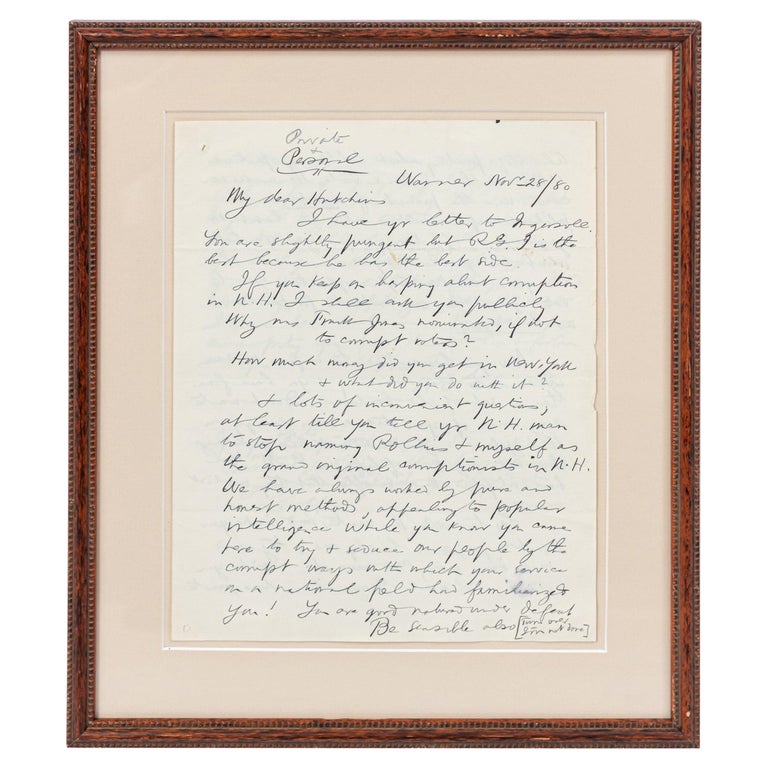 Private
+
Personal
Warner Nov 28/80
My dear Hutchins
I have yr letter to Ingersoll.
You are slightly pungent but R.G.I is the
best because he has the best side.
If you keep on harping about corruption
in N.H. I shall ask you publicly
Why was Frank Jones nominated, if not
to corrupt votes?
How much money did you get in New York
+ what did you do with it?
+ lots of inconvenient questions,
at least till you tell yr N.H. man
to stop naming Rollins + myself as
the grand original corruptionists in N.H.
We have always worked by pure and
honest methods, appealing to popular
intelligence while you know you came
here to try + seduce our people by the
corrupt ways with which your service
on a national field had familiarized
you! You are good natured under defeat
Be sensible also [Turn over
I'm not done]